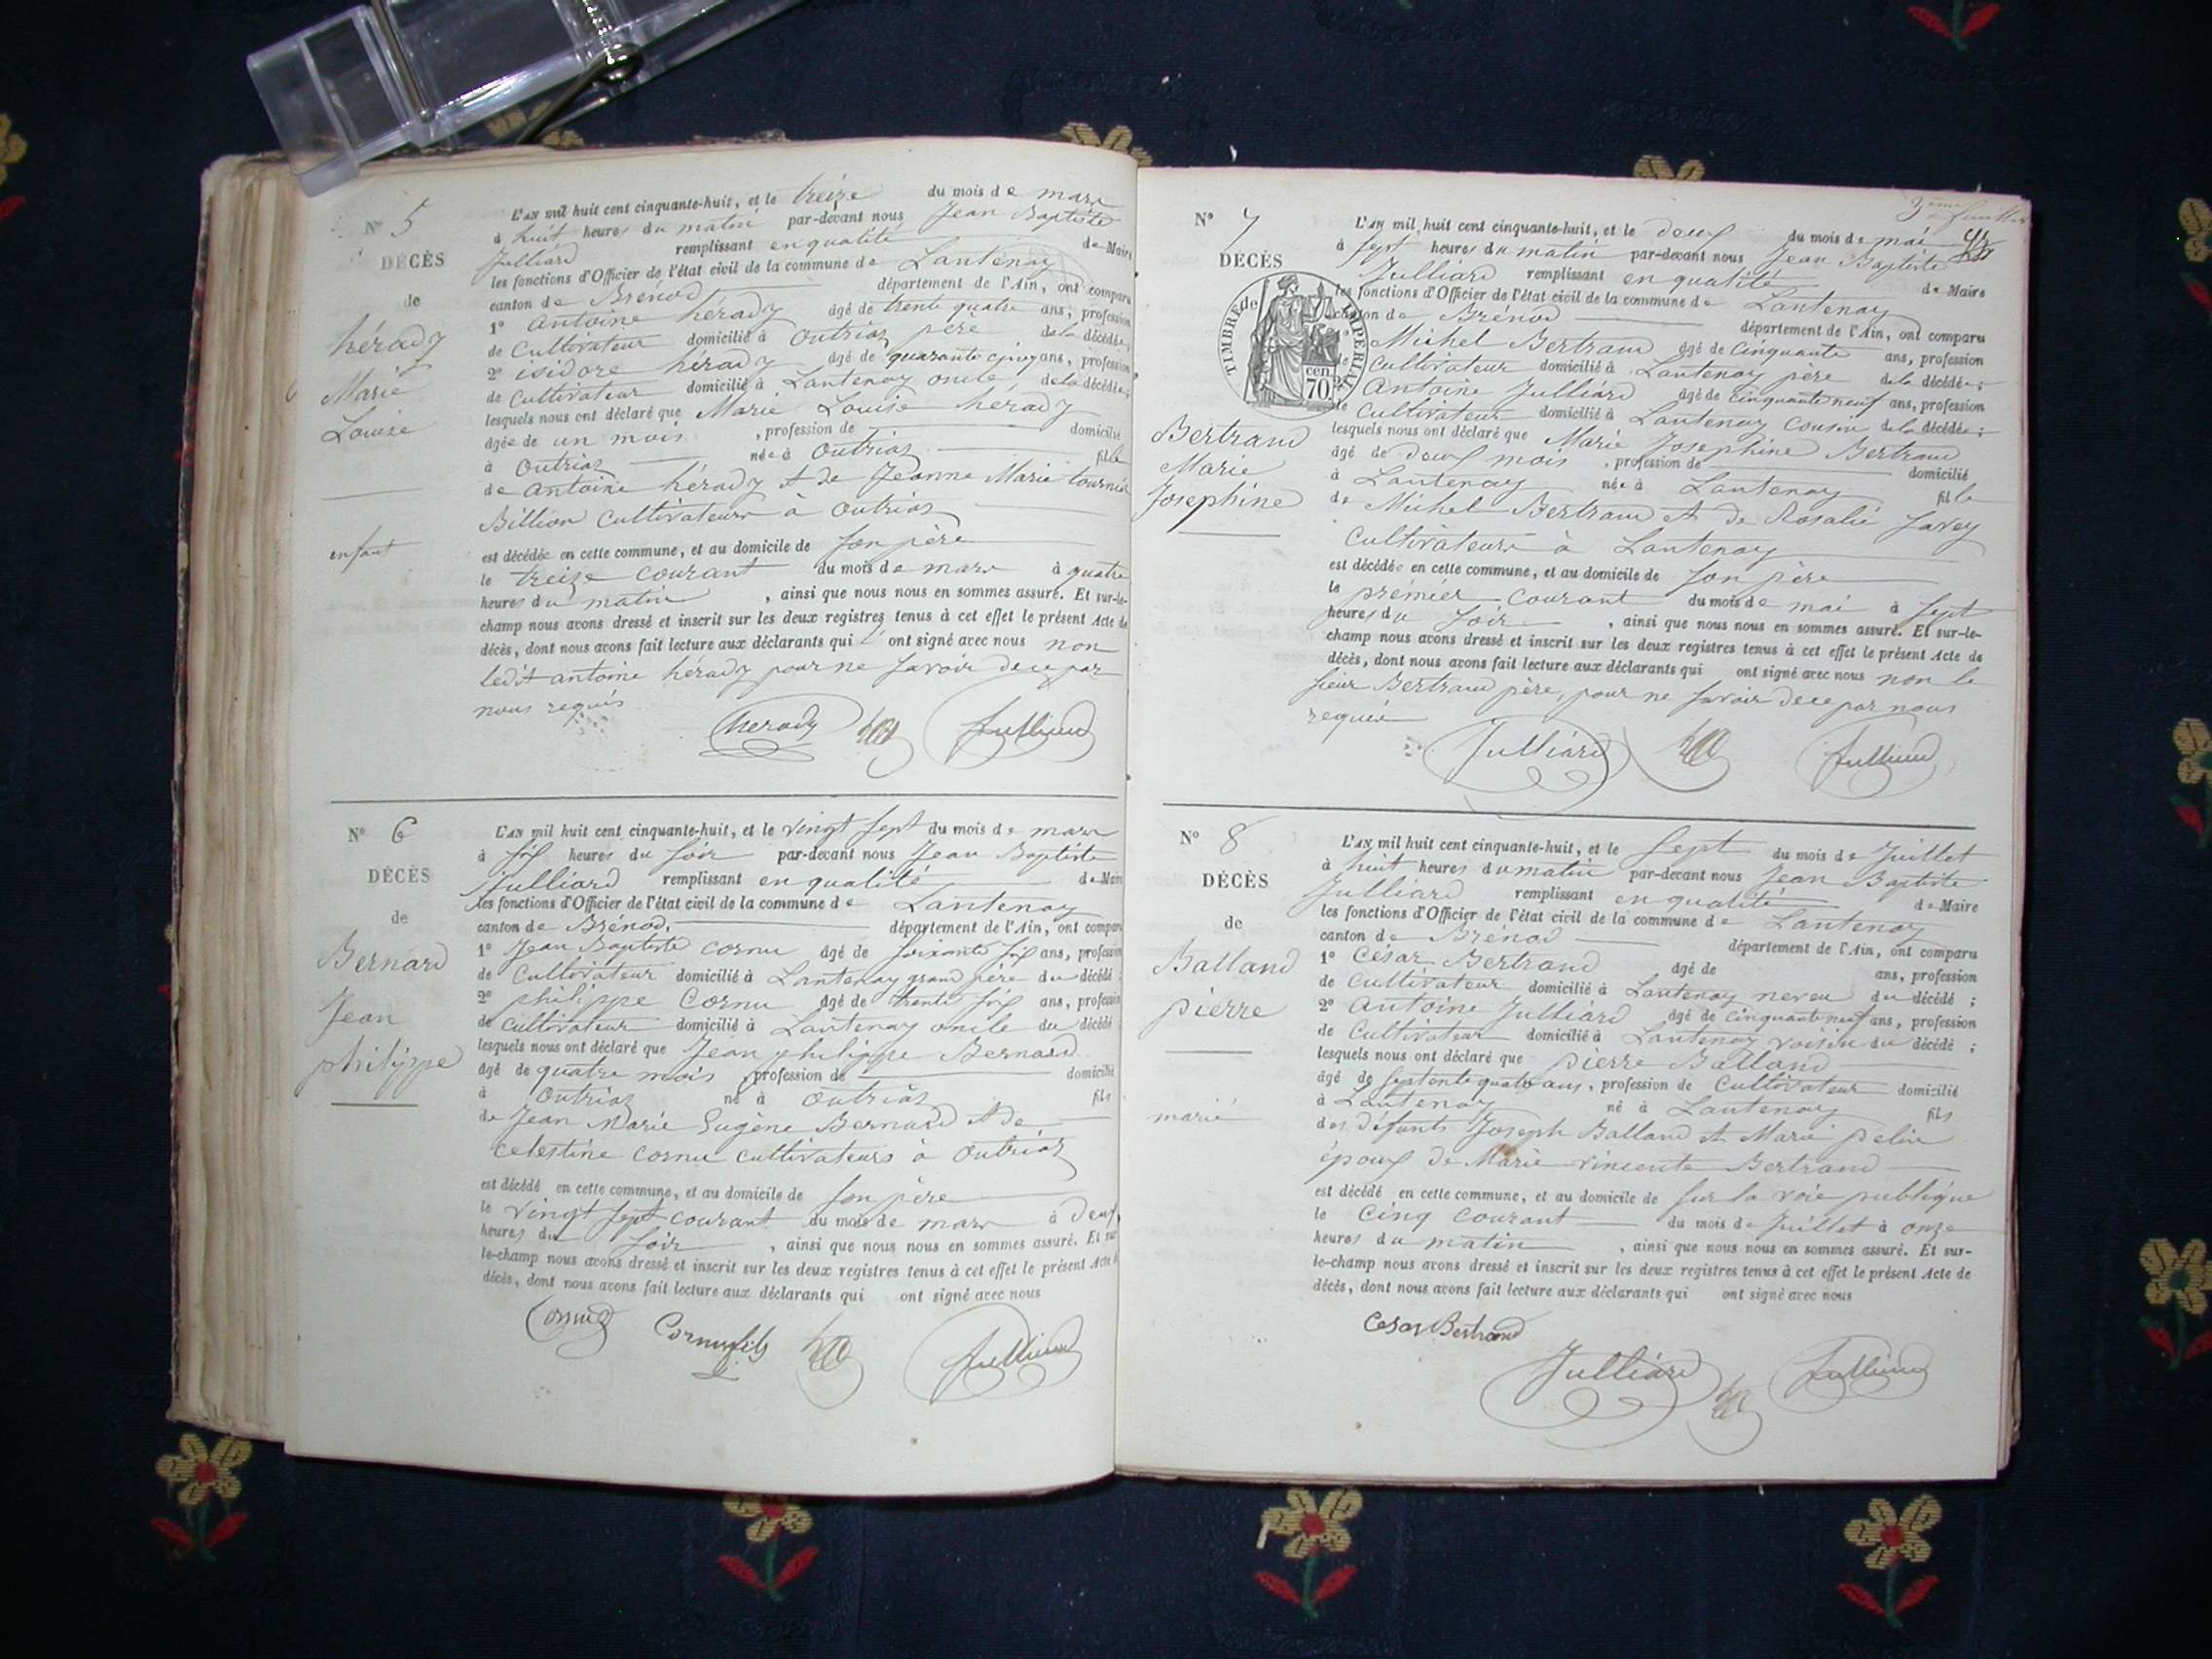 N° 5
DÉCÈS
de
hérady
Marie
Louise
enfant
L'AN mil huit cent cinquante-huit, et le treize du mois de mars
à huit heures du matin par-devant nous Jean Baptiste
Julliard remplissant en qualité de Maire
les fonctions d'Officier de l'état civil de la commune de Lantenay
canton de Brénod département de l'Ain, ont comparu
1° antoine hérady âgé de trente quatre ans, profession
de Cultivateur domicilié à Outriaz père de la décédée;
2° isidore hérady âgé de quarante cinq ans, profession
de Cultivateur domicilié à Lantenay oncle de la décédée;
lesquels nous ont déclaré que Marie Louise hérady
âgée de un mois , profession de domicilié
à Outriaz née à Outriaz fille
de antoine hérady et de Jeanne Marie tournier
Billion Cultivateurs à Outriaz
est décédée en cette commune, et au domicile de son père
le treize courant du mois de mars à quatre
heures du matin , ainsi que nous nous en sommes assuré. Et sur-le-
champ nous avons dressé et inscrit sur les deux registres tenus à cet effet le présent Acte de
décès, dont nous avons fait lecture aux déclarants qui ont signé avec nous non
ledit antoine hérady pour ne savoir de ce par
nous requis
herady Julliard
N° 6
DÉCÈS
de
Bernard
Jean
philippe
L'AN mil huit cent cinquante-huit, et le vingt sept du mois de mars
à six heures du soir par-devant nous Jean Baptiste
Julliard remplissant en qualité de Maire
les fonctions d'Officier de l'état civil de la commune de Lantenay
canton de Brénod. département de l'Ain, ont comparu
1° Jean Baptiste Cornu âgé de soixante six ans, profession
de Cultivateur domicilié à Lantenay grand père du décédé;
2° philippe Cornu âgé de trente six ans, profession
de cultivateur domicilié à Lantenay oncle du décédé;
lesquels nous ont déclaré que Jean philippe Bernard
âgé de quatre mois , profession de domicilié
à Outriaz né à Outriaz fils
de Jean Marie Eugène Bernard et de
celestine cornu cultivateurs à Outriaz
est décédé en cette commune, et au domicile de son père
le vingt sept courant du mois de mars à deux
heures du soir , ainsi que nous nous en sommes assuré. Et sur
le-champ nous avons dressé et inscrit sur les deux registres tenus à cet effet le présent Acte de
décès, dont nous avons fait lecture aux déclarants qui ont signé avec nous
Cornu Cornu fils Julliard
3ème feuillet
N° 7
DÉCÈS
de
TIMBRE IMPERIAL
70 cen
Bertrand
Marie
Josephine
L'AN mil huit cent cinquante-huit, et le deux du mois de mai
à sept heures du matin par-devant nous Jean Baptiste
Julliard remplissant en qualité de Maire
les fonctions d'Officier de l'état civil de la commune de Lantenay
canton de Brénod département de l'Ain, ont comparu
Michel Bertrand âgé de Cinquante ans, profession
Cultivateur domicilié à Lantenay père de la décédée;
2° Antoine Julliard âgé de Cinquante neuf ans, profession
de Cultivateur domicilié à Lantenay Cousin de la décédée;
lesquels nous ont déclaré que Marie Josephine Bertrand
âgé de deux mois , profession de domicilié
à Lantenay née à Lantenay fille
de Michel Bertrand et de Rosalie Savey
Cultivateurs à Lantenay
est décédée en cette commune, et au domicile de son père
le prémiér courant du mois de mai à sept
heures du soir , ainsi que nous nous en sommes assuré. Et sur-le-
champ nous avons dressé et inscrit sur les deux registres tenus à cet effet le présent Acte de
décès, dont nous avons fait lecture aux déclarants qui ont signé avec nous non le
sieur Bertrand père, pour ne savoir de ce par nous
requis
Julliard Julliard
N° 8
DÉCÈS
de
Balland
pierre
marié
L'AN mil huit cent cinquante-huit, et le sept du mois de Juillet
à huit heures du matin par-devant nous Jean Baptiste
Julliard remplissant en qualité de Maire
les fonctions d'Officier de l'état civil de la commune de Lantenay
canton de Brénod département de l'Ain, ont comparu
1° César Bertrand âgé de ans, profession
de Cultivateur domicilié à Lantenay neveu du décédé ;
2° Antoine Julliard âgé de cinquante neuf ans, profession
de Cultivateur domicilié à Lantenay voisin du décédé ;
lesquels nous ont déclaré que pierre Balland
âgé de septente quatre ans, profession de Cultivateur domicilié
à Lantenay né à Lantenay fils
des défunts Joseph Balland et Marie pelin
époux de Marie vincente Bertrand
est décédé en cette commune, et au domicile de sur la voie publique
le Cinq Courant du mois de Juillet à onze
heures du matin , ainsi que nous nous en sommes assuré. Et sur-
le-champ nous avons dressé et inscrit sur les deux registres tenus à cet effet le présent Acte de
décès, dont nous avons fait lecture aux déclarants qui ont signé avec nous
Cesar Bertrand
Julliard Julliard